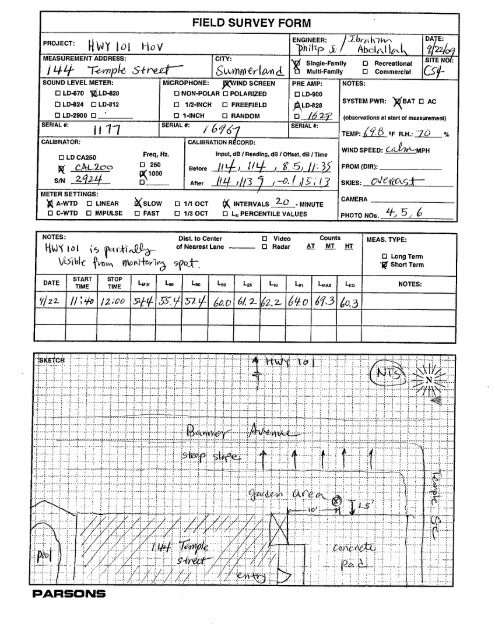 FIELD SURVEY FORM
PROJECT: HWY 101 HOV
ENGINEER: Philip J. / Ibrahim Abdallah
DATE: 9/22/09
MEASUREMENT ADDRESS: 144 Temple Street
CITY: Summerland
Single-Family □ Recreational
□ Multi-Family □ Commercial
SITE NO:
SOUND LEVEL METER:
□ LD-870 LD-820
□ LD-824 □ LD-812
□ LD-2900 □
SERIAL #: 1177
MICROPHONE: WIND SCREEN
□ NON-POLAR □ POLARIZED
□ 1/2-INCH □ FREEFIELD
□ 1-INCH □ RANDOM
SERIAL #: 16967
PRE AMP:
□ LD-900
LD-828
□ 1629
SERIAL #:
NOTES:
SYSTEM PWR: BAT □ AC
(observations at start of measurement)
TEMP: 69.8 °F R.H.: 70 %
WIND SPEED: calm MPH
FROM (DIR):
SKIES: overcast
CAMERA
PHOTO NOs. 4, 5, 6
CALIBRATOR:
□ LD CA250
CAL200
S/N 2924
Freq, Hz.
□ 250
1000
□
CALIBRATION RECORD:
Input, dB / Reading, dB / Offset, dB / Time
Before 114, 114, 8.5, 11:35
After 114, 113.9, -0.1, 15:13
METER SETTINGS:
A-WTD □ LINEAR SLOW □ 1/1 OCT INTERVALS 20 - MINUTE
□ C-WTD □ IMPULSE □ FAST □ 1/3 OCT □ LN PERCENTILE VALUES
NOTES:
HWY 101 is partially
visible from monitoring spot.
Dist. to Center
of Nearest Lane
□ Video
□ Radar
Counts
AT MT HT
MEAS. TYPE:
□ Long Term
Short Term
DATE START TIME STOP TIME LMIN L99 L90 L50 L25 L10 L01 LMAX LEQ NOTES:
9/22 11:40 12:00 54.4 55.4 57.4 60.0 61.2 62.2 64.0 69.3 60.3
SKETCH
HWY 101
NTS
N
Banner Avenue
steep slope
garden area
10'
Temple St
Pool
144 Temple
street
concrete
pad
entry
PARSONS